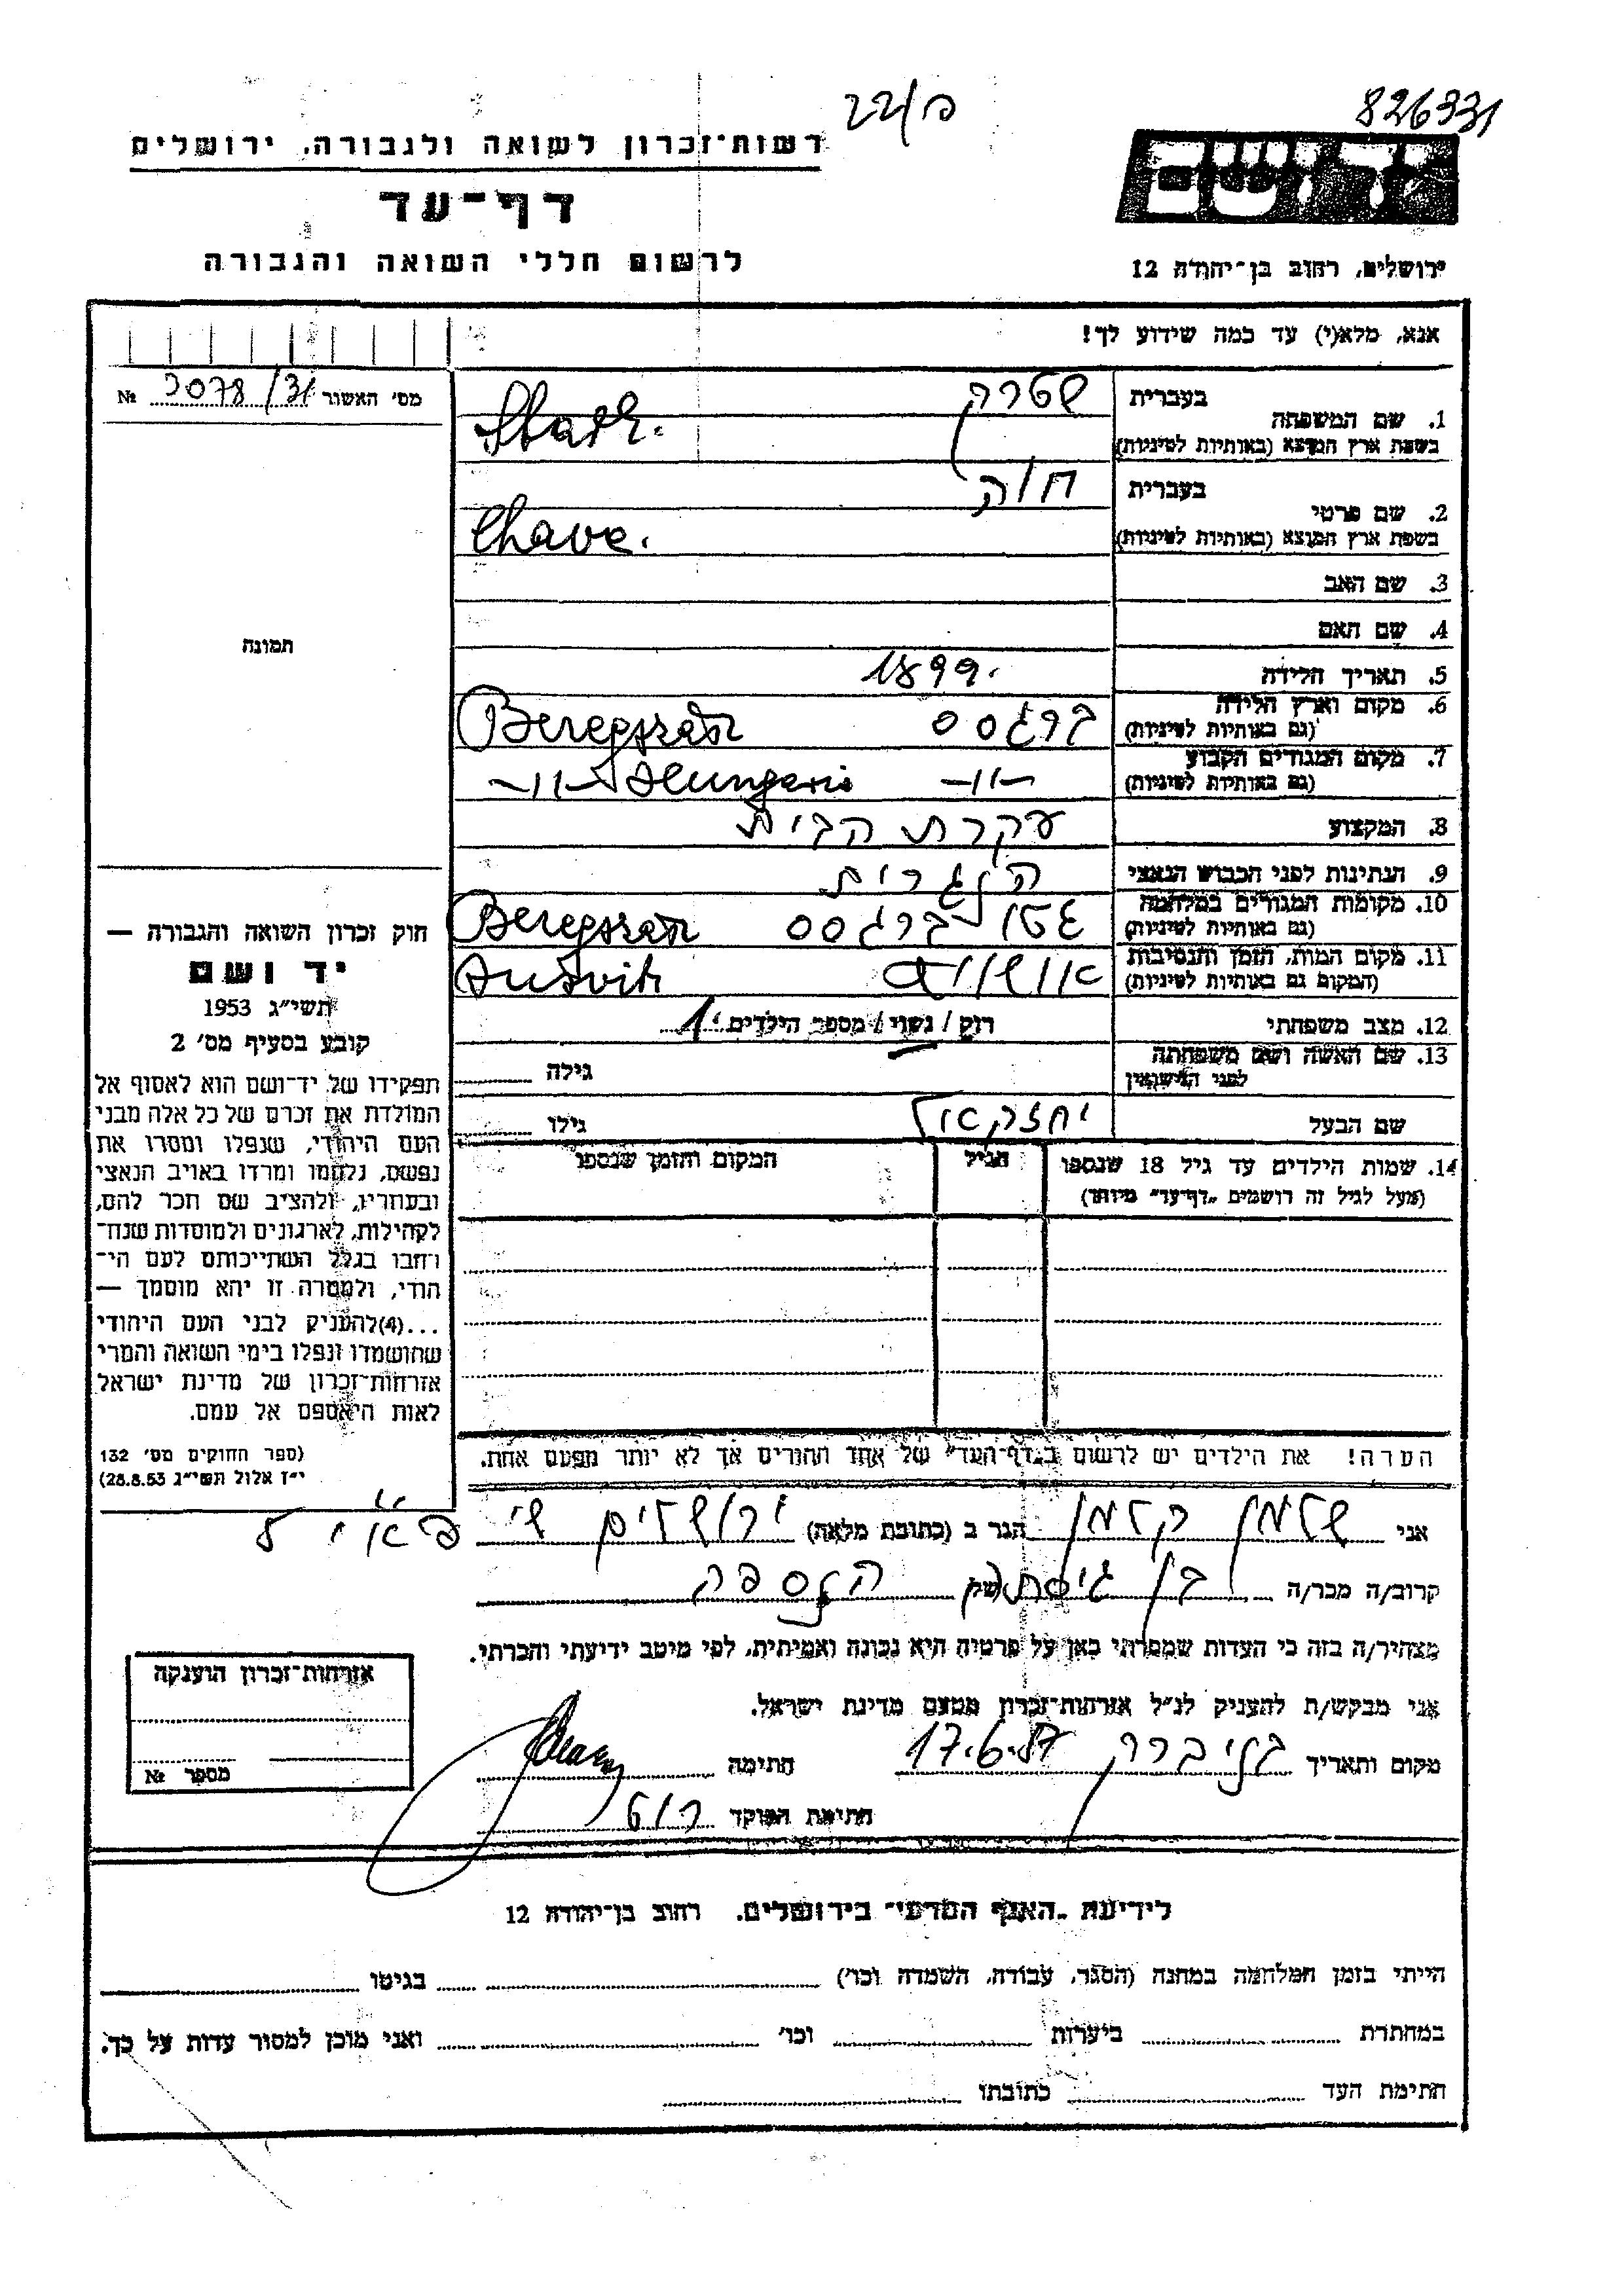 22/פ
826331
רשות־זכרון לשואה ולגבורה, ירושלים
דף־עד
לרשום חללי השואה והגבורה
יד ושם
ירושלים, רחוב בן־יהודה 12
אנא, מלא(י) עד כמה שידוע לך!
מס׳ האשור 3078/31 №
תמונה
1. שם המשפחה בעברית שטרק
בשפת ארץ המוצא (באותיות לטיניות) Stark.
2. שם פרטי בעברית חוה
בשפת ארץ המוצא (באותיות לטיניות) Chave.
3. שם האב
4. שם האם
5. תאריך הלידה 1899.
6. מקום וארץ הלידה (גם באותיות לטיניות) ברגסס Beregszasz
7. מקום המגורים הקבוע (גם באותיות לטיניות) –״– –״– Hungaria
8. המקצוע עקרת הבית
9. הנתינות לפני הכבוש הנאצי הונגרית
10. מקומות המגורים במלחמה (גם באותיות לטיניות) גטו ברגסס Beregszasz
11. מקום המות, הזמן והנסיבות (המקום גם באותיות לטיניות) אושוויס Ausvitz
12. מצב משפחתי רוק / נשוי / מספר הילדים 1
13. שם האשה ושם משפחתה לפני הנישואין גילה
שם הבעל יחזקאל גילו
14. שמות הילדים עד גיל 18 שנספו הגיל המקום והזמן שנספו
(מעל לגיל זה רושמים „דף־עד״ מיוחד)
הערה! את הילדים יש לרשום ב„דף־העד״ של אחד ההורים אך לא יותר מפעם אחת.
חוק זכרון השואה והגבורה —
יד ושם
תשי״ג 1953
קובע בסעיף מס׳ 2
תפקידו של יד־ושם הוא לאסוף אל
המולדת את זכרם של כל אלה מבני
העם היהודי, שנפלו ומסרו את
נפשם, נלחמו ומרדו באויב הנאצי
ובעוזריו, ולהציב שם וזכר להם,
לקהילות, לארגונים ולמוסדות שנח־
רחבו בגלל השתייכותם לעם הי־
הודי, ולמטרה זו יהא מוסמך —
...(4)להעניק לבני העם היהודי
שהושמדו ונפלו בימי השואה והמרי
אזרחות־זכרון של מדינת ישראל
לאות היאספם אל עמם.
(ספר החוקים מס׳ 132
י״ז אלול תשי״ג 28.8.53)
אני קלמן הגר ב (כתובת מלאה) ירושלים
קרוב/ה מכר/ה בן הנספה
מצהיר/ה בזה כי העדות שמסרתי כאן על פרטיה היא נכונה ואמיתית, לפי מיטב ידיעתי והכרתי.
אני מבקש/ת להעניק לנ״ל אזרחות־זכרון מטעם מדינת ישראל.
מקום ותאריך בני ברק 17.6.57 חתימה
חתימת הפוקד
אזרחות־זכרון הוענקה
מספר №
לידיעת „האגף המדעי״ בירושלים, רחוב בן־יהודה 12
הייתי בזמן המלחמה במחנה (הסגר, עבודה, השמדה וכו׳) בגיטו
במחתרת ביערות וכו׳ ואני מוכן למסור עדות על כך.
חתימת העד כתובתו